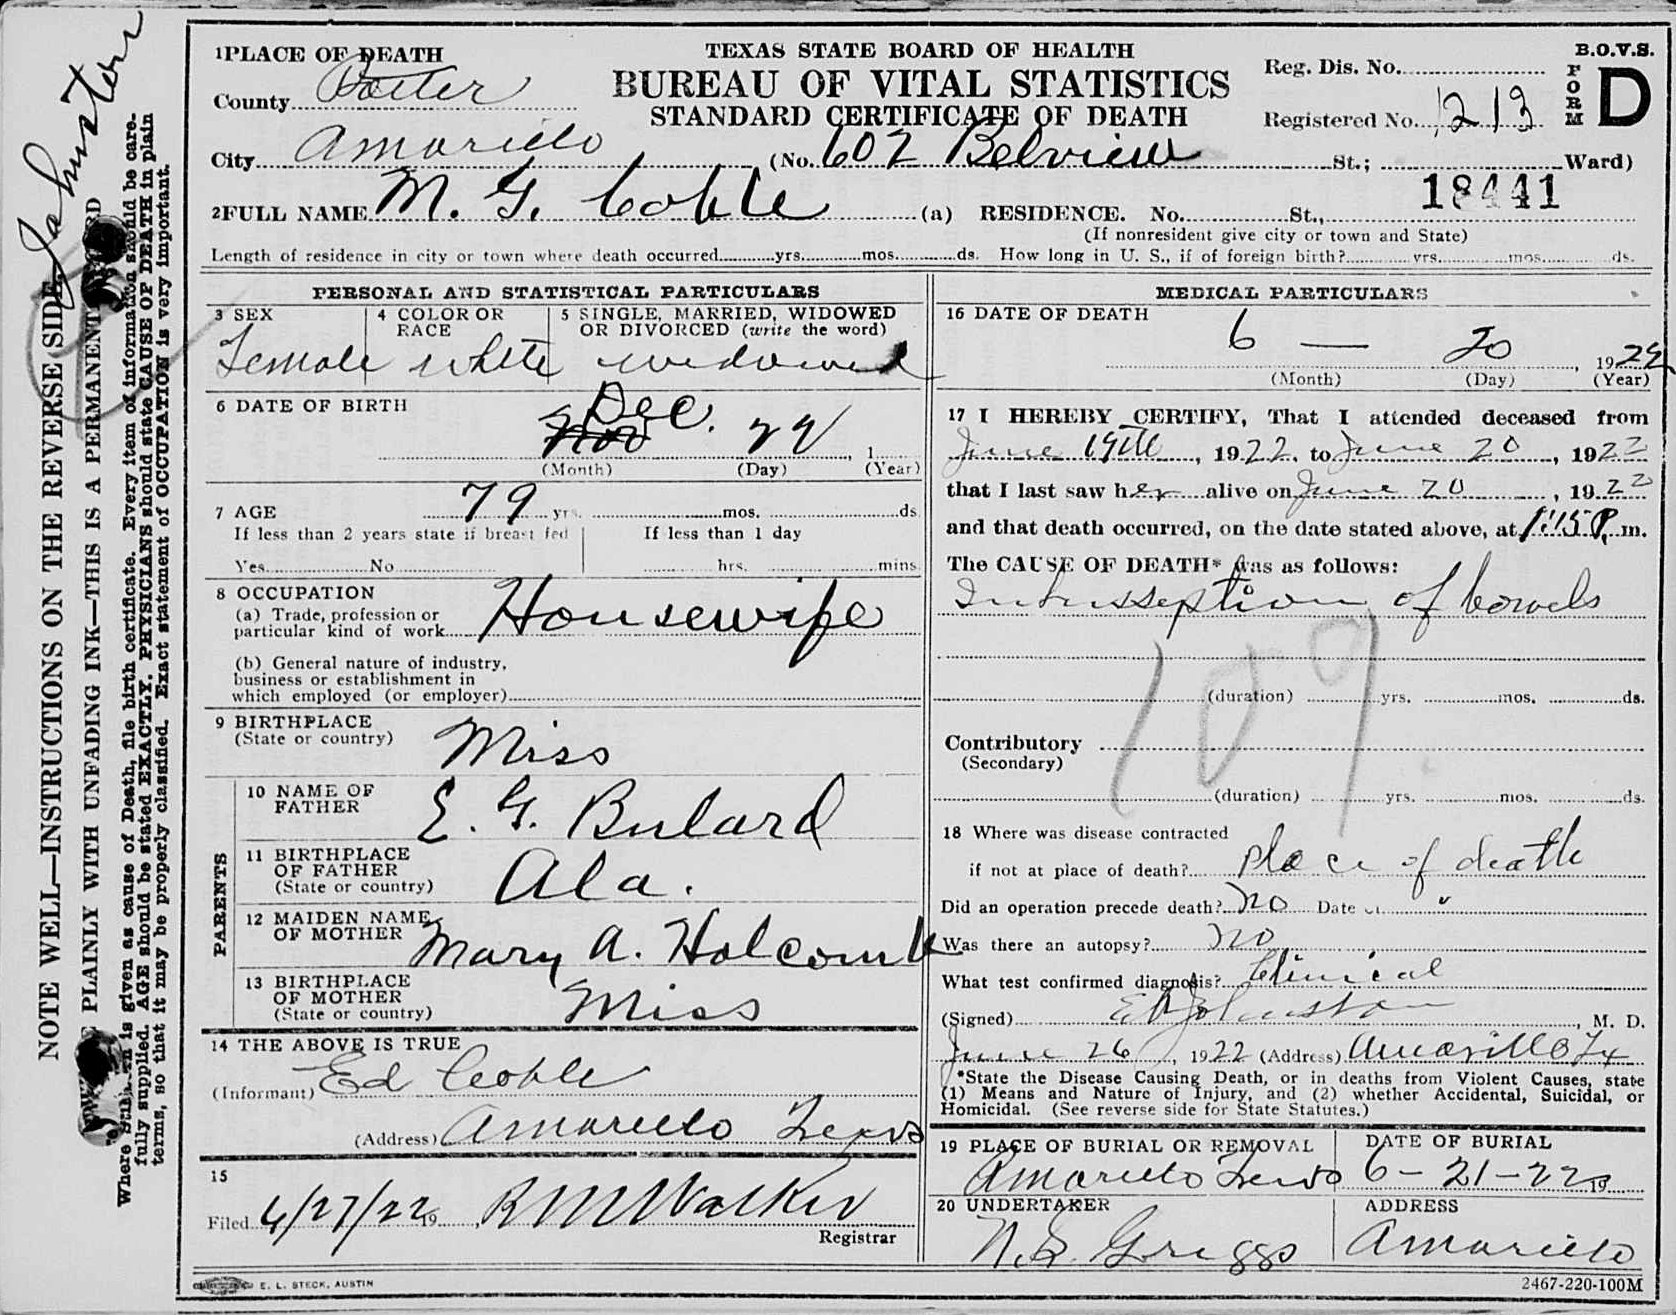 1 PLACE OF DEATH
County Potter
City Amarillo (No. 602 Belview St.; Ward)
TEXAS STATE BOARD OF HEALTH
BUREAU OF VITAL STATISTICS
STANDARD CERTIFICATE OF DEATH
B.O.V.S.
Reg. Dis. No.
Registered No. 1213
FORM D
18441
2 FULL NAME M. G. Coble (a) RESIDENCE. No. St.,
(If nonresident give city or town and State)
Length of residence in city or town where death occurred yrs. mos. ds. How long in U. S., if of foreign birth? yrs. mos. ds.
PERSONAL AND STATISTICAL PARTICULARS
3 SEX
Female
4 COLOR OR RACE
white
5 SINGLE, MARRIED, WIDOWED
OR DIVORCED (write the word)
widowed
6 DATE OF BIRTH
Dec.
Nov 22, 1
(Month) (Day) (Year)
7 AGE 79 yrs. mos. ds
If less than 2 years state if breast fed
Yes No
If less than 1 day
hrs. mins
8 OCCUPATION
(a) Trade, profession or
particular kind of work Housewife
(b) General nature of industry,
business or establishment in
which employed (or employer)
9 BIRTHPLACE
(State or country) Miss
PARENTS
10 NAME OF
FATHER E. G. Bulard
11 BIRTHPLACE
OF FATHER
(State or country) Ala.
12 MAIDEN NAME
OF MOTHER Mary A. Holcomb
13 BIRTHPLACE
OF MOTHER
(State or country) Miss
14 THE ABOVE IS TRUE
(Informant) Ed Coble
(Address) Amarillo Texas
15
Filed 6/27/22 19 , R M Walker
Registrar
MEDICAL PARTICULARS
16 DATE OF DEATH
6 — 20, 1922
(Month) (Day) (Year)
17 I HEREBY CERTIFY, That I attended deceased from
June 19th, 1922, to June 20, 1922
that I last saw her alive on June 20, 1922
and that death occurred, on the date stated above, at 1:15 P. m.
The CAUSE OF DEATH* was as follows:
Intusseption of bowels
109
(duration) yrs. mos. ds.
Contributory
(Secondary)
(duration) yrs. mos. ds.
18 Where was disease contracted
if not at place of death? place of death
Did an operation precede death? No Date of "
Was there an autopsy? No
What test confirmed diagnosis? Clinical
(Signed) Johnston, M. D.
June 26, 1922 (Address) Amarillo Tx
*State the Disease Causing Death, or in deaths from Violent Causes, state
(1) Means and Nature of Injury, and (2) whether Accidental, Suicidal, or
Homicidal. (See reverse side for State Statutes.)
19 PLACE OF BURIAL OR REMOVAL
Amarillo Texas
DATE OF BURIAL
6-21-22 19
20 UNDERTAKER
N. S. Griggs
ADDRESS
Amarillo
E. L. STECK, AUSTIN
2467-220-100M
Johnston
NOTE WELL—INSTRUCTIONS ON THE REVERSE SIDE
PLAINLY WITH UNFADING INK—THIS IS A PERMANENT
Where is given as cause of Death, file birth certificate. Every item of information should be care-
fully supplied. AGE should be stated EXACTLY. PHYSICIANS should state CAUSE OF DEATH in plain
terms, so that it may be properly classified. Exact statement of OCCUPATION is very important.